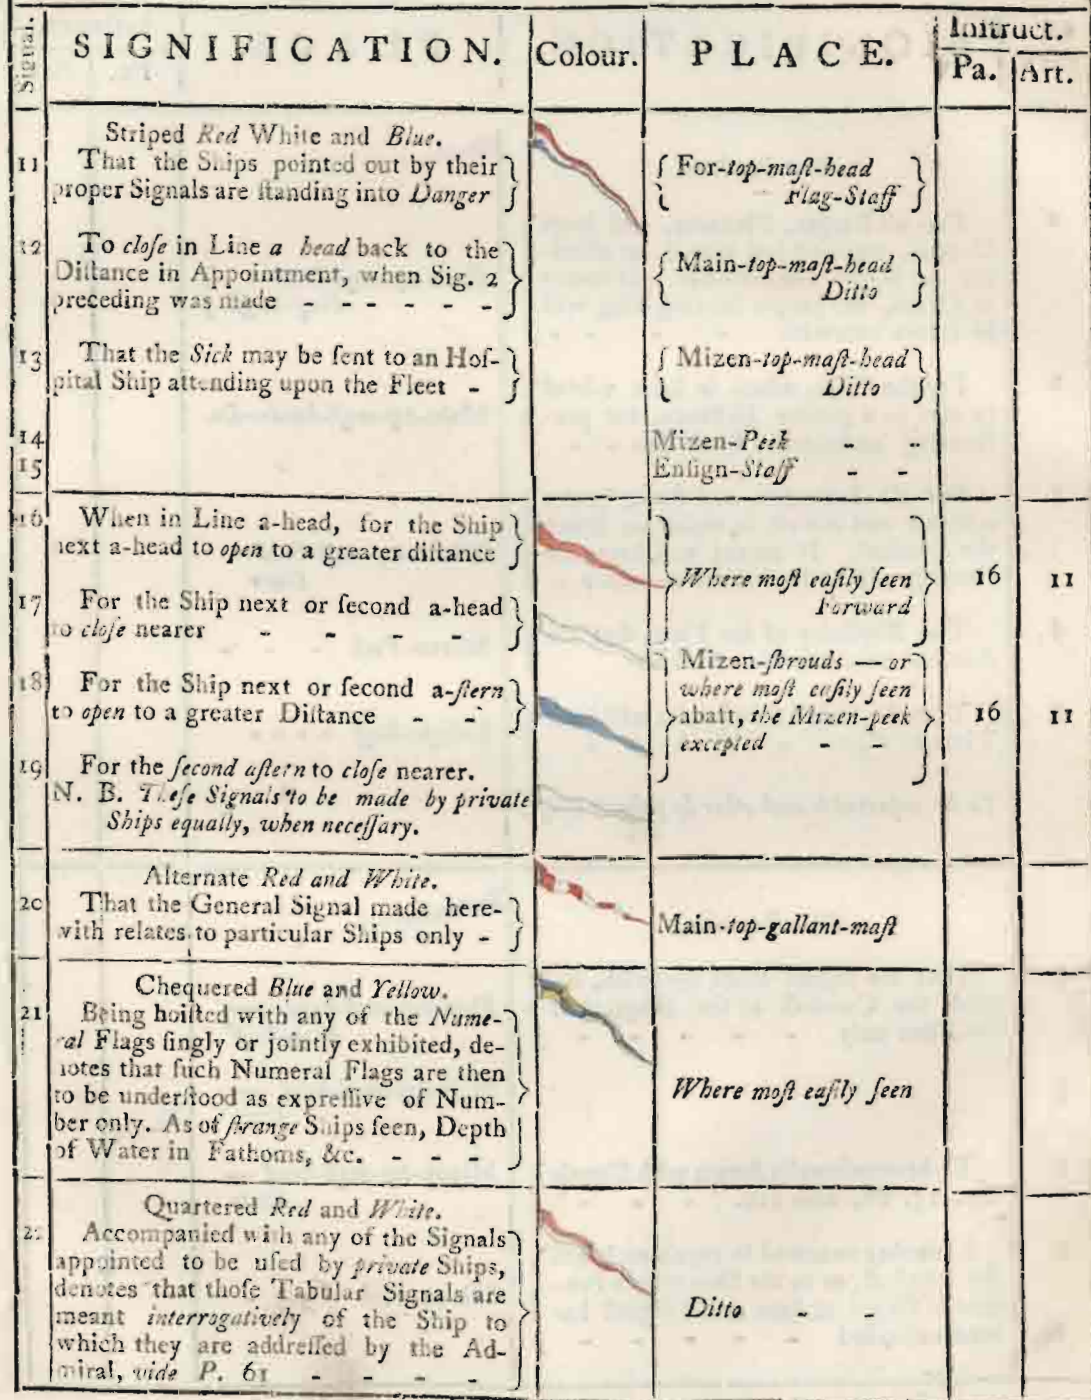 Signal.
SIGNIFICATION.
Colour.
PLACE.
Inſtruct.
Pa.
Art.
Striped Red White and Blue.
11 That the Ships pointed out by their
proper Signals are ſtanding into Danger
For-top-maſt-head
Flag-Staff
12 To cloſe in Line a head back to the
Diſtance in Appointment, when Sig. 2
preceding was made - - - - -
Main-top-maſt-head
Ditto
13 That the Sick may be ſent to an Hoſ-
pital Ship attending upon the Fleet -
Mizen-top-maſt-head
Ditto
14 Mizen-Peek - -
15 Enſign-Staff - -
16 When in Line a-head, for the Ship
next a-head to open to a greater diſtance
Where moſt eaſily ſeen
Forward
16 11
17 For the Ship next or ſecond a-head
to cloſe nearer - - - - -
18 For the Ship next or ſecond a-ſtern
to open to a greater Diſtance - -
Mizen-ſhrouds — or
where moſt eaſily ſeen
abatt, the Mizen-peek
excepted - -
16 11
19 For the ſecond aſtern to cloſe nearer.
N. B. Theſe Signals to be made by private
Ships equally, when neceſſary.
Alternate Red and White.
20 That the General Signal made here-
with relates to particular Ships only -
Main-top-gallant-maſt
Chequered Blue and Yellow.
21 Being hoiſted with any of the Nume-
ral Flags ſingly or jointly exhibited, de-
notes that ſuch Numeral Flags are then
to be underſtood as expreſſive of Num-
ber only. As of ſtrange Ships ſeen, Depth
of Water in Fathoms, &c. - - -
Where moſt eaſily ſeen
Quartered Red and White.
22 Accompanied with any of the Signals
appointed to be uſed by private Ships,
denotes that thoſe Tabular Signals are
meant interrogatively of the Ship to
which they are addreſſed by the Ad-
miral, vide P. 61 - - - -
Ditto - -